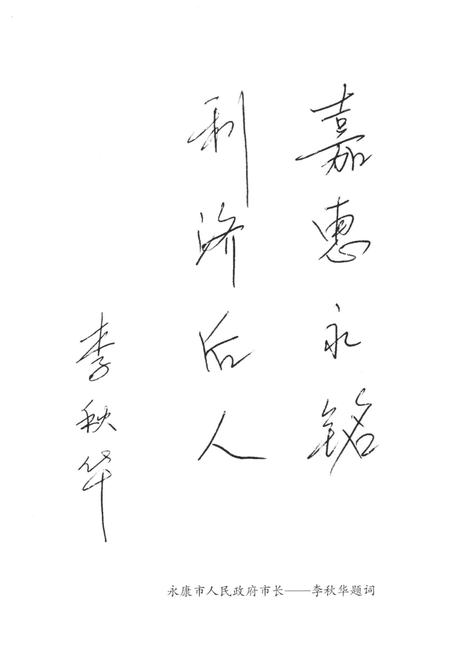 嘉惠永铭
利济后人
李秋华
永康市人民政府市长——李秋华题词